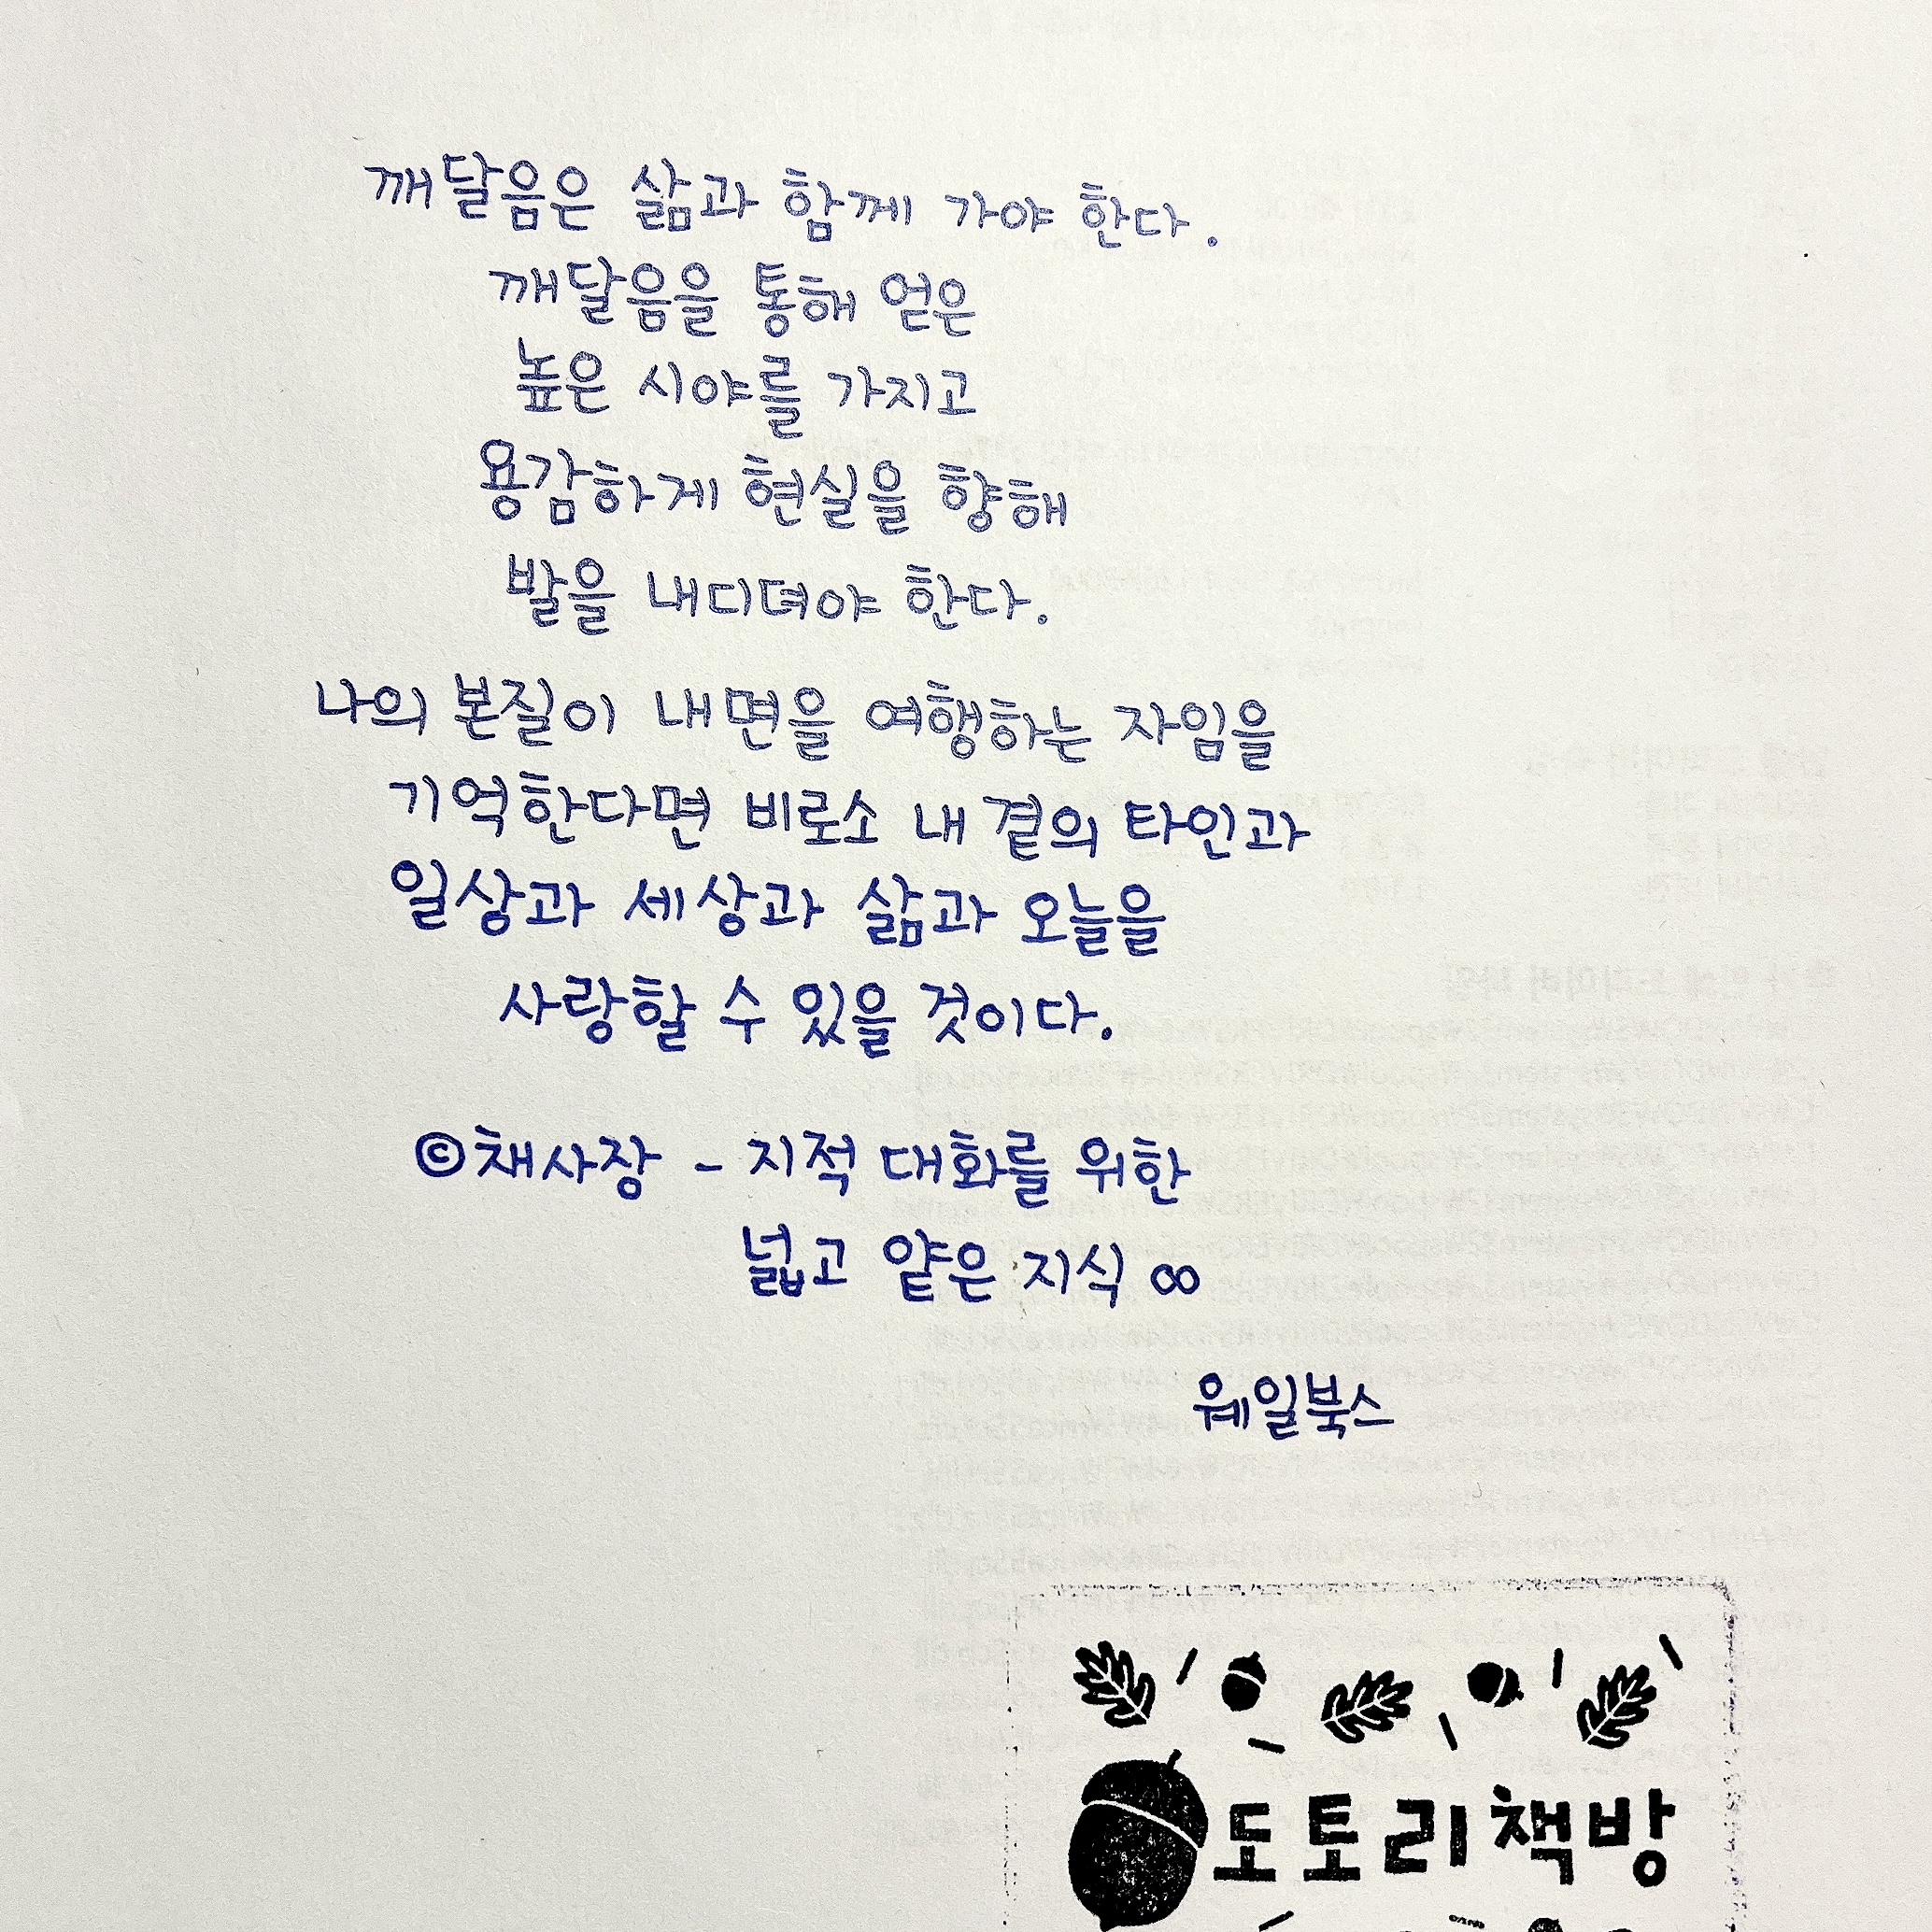 깨달음은 삶과 함께 가야 한다.
깨달음을 통해 얻은
높은 시야를 가지고
용감하게 현실을 향해
발을 내디뎌야 한다.
나의 본질이 내면을 여행하는 자임을
기억한다면 비로소 내 곁의 타인과
일상과 세상과 삶과 오늘을
사랑할 수 있을 것이다.
©채사장 - 지적 대화를 위한
넓고 얕은 지식 ∞
웨일북스
도토리책방